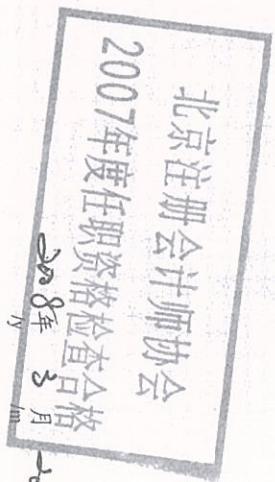 北京注册会计师协会
2007年度任职资格检查合格
2008年 3月
/y /m